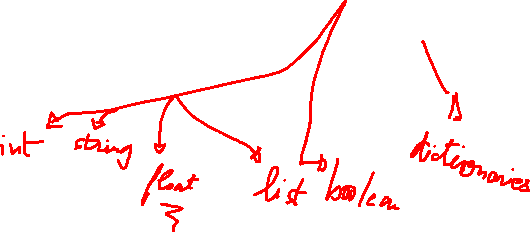 int string float list boolean dictionaries